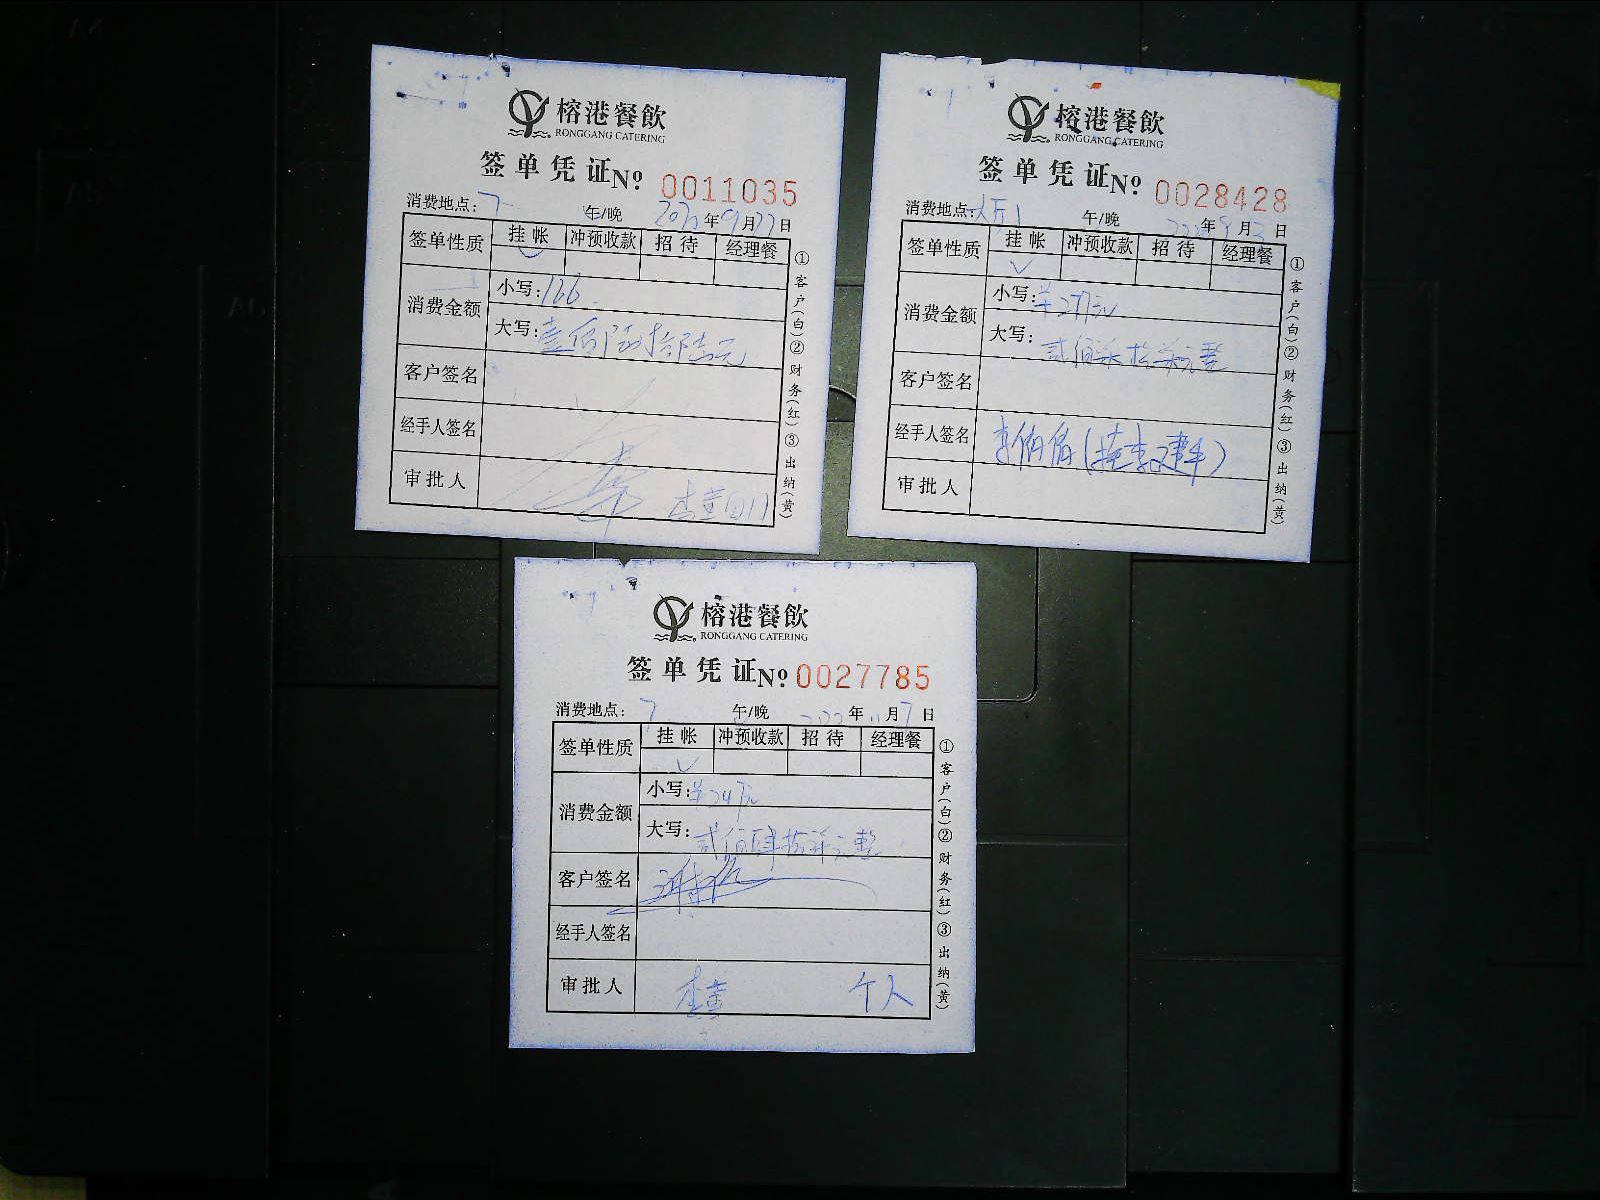 榕港餐飲
RONGGANG CATERING
签单凭证 Nº 0011035
消费地点: 7 午/晚 年9月27日
签单性质 挂帐 冲预收款 招待 经理餐
消费金额 小写: 166
大写: 壹佰陆拾陆元
客户签名
经手人签名
审批人
①客户(白)②财务(红)③出纳(黄)
榕港餐飲
RONGGANG CATERING
签单凭证 Nº 0028428
消费地点: 午/晚 年9月 日
签单性质 挂帐 冲预收款 招待 经理餐
消费金额 小写: ¥277元
大写: 贰佰柒拾柒元整
客户签名
经手人签名
审批人
①客户(白)②财务(红)③出纳(黄)
榕港餐飲
RONGGANG CATERING
签单凭证 Nº 0027785
消费地点: 7 午/晚 2022年11月7日
签单性质 挂帐 冲预收款 招待 经理餐
消费金额 小写: ¥247元
大写: 贰佰肆拾柒元整
客户签名
经手人签名
审批人 个人
①客户(白)②财务(红)③出纳(黄)